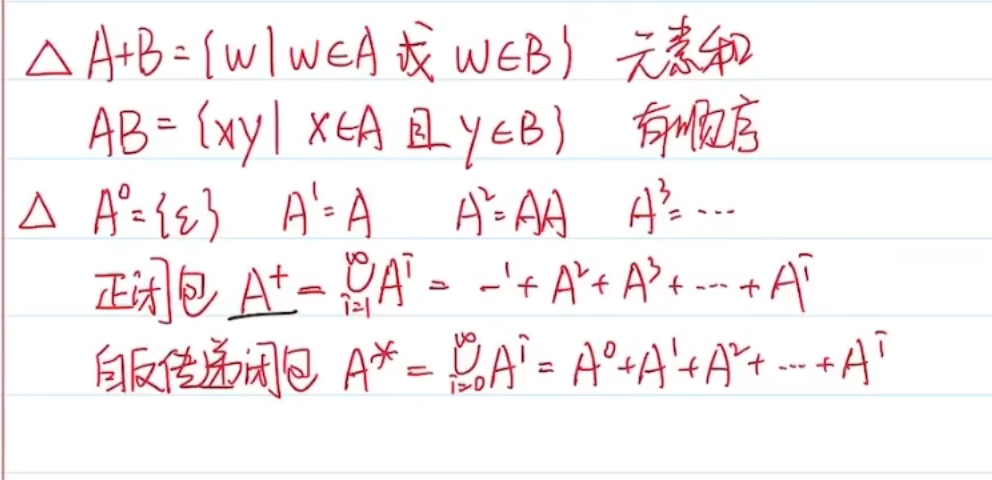 △ A+B={w|w∈A 或 w∈B} 元素和
AB={xy|x∈A 且 y∈B} 有顺序
△ A⁰={ε} A¹=A A²=AA A³=⋯
正闭包 A⁺=⋃_{i=1}^{∞}Aⁱ = -¹+A²+A³+⋯+Aⁱ
自反传递闭包 A*=⋃_{i=0}^{∞}Aⁱ=A⁰+A¹+A²+⋯+Aⁱ